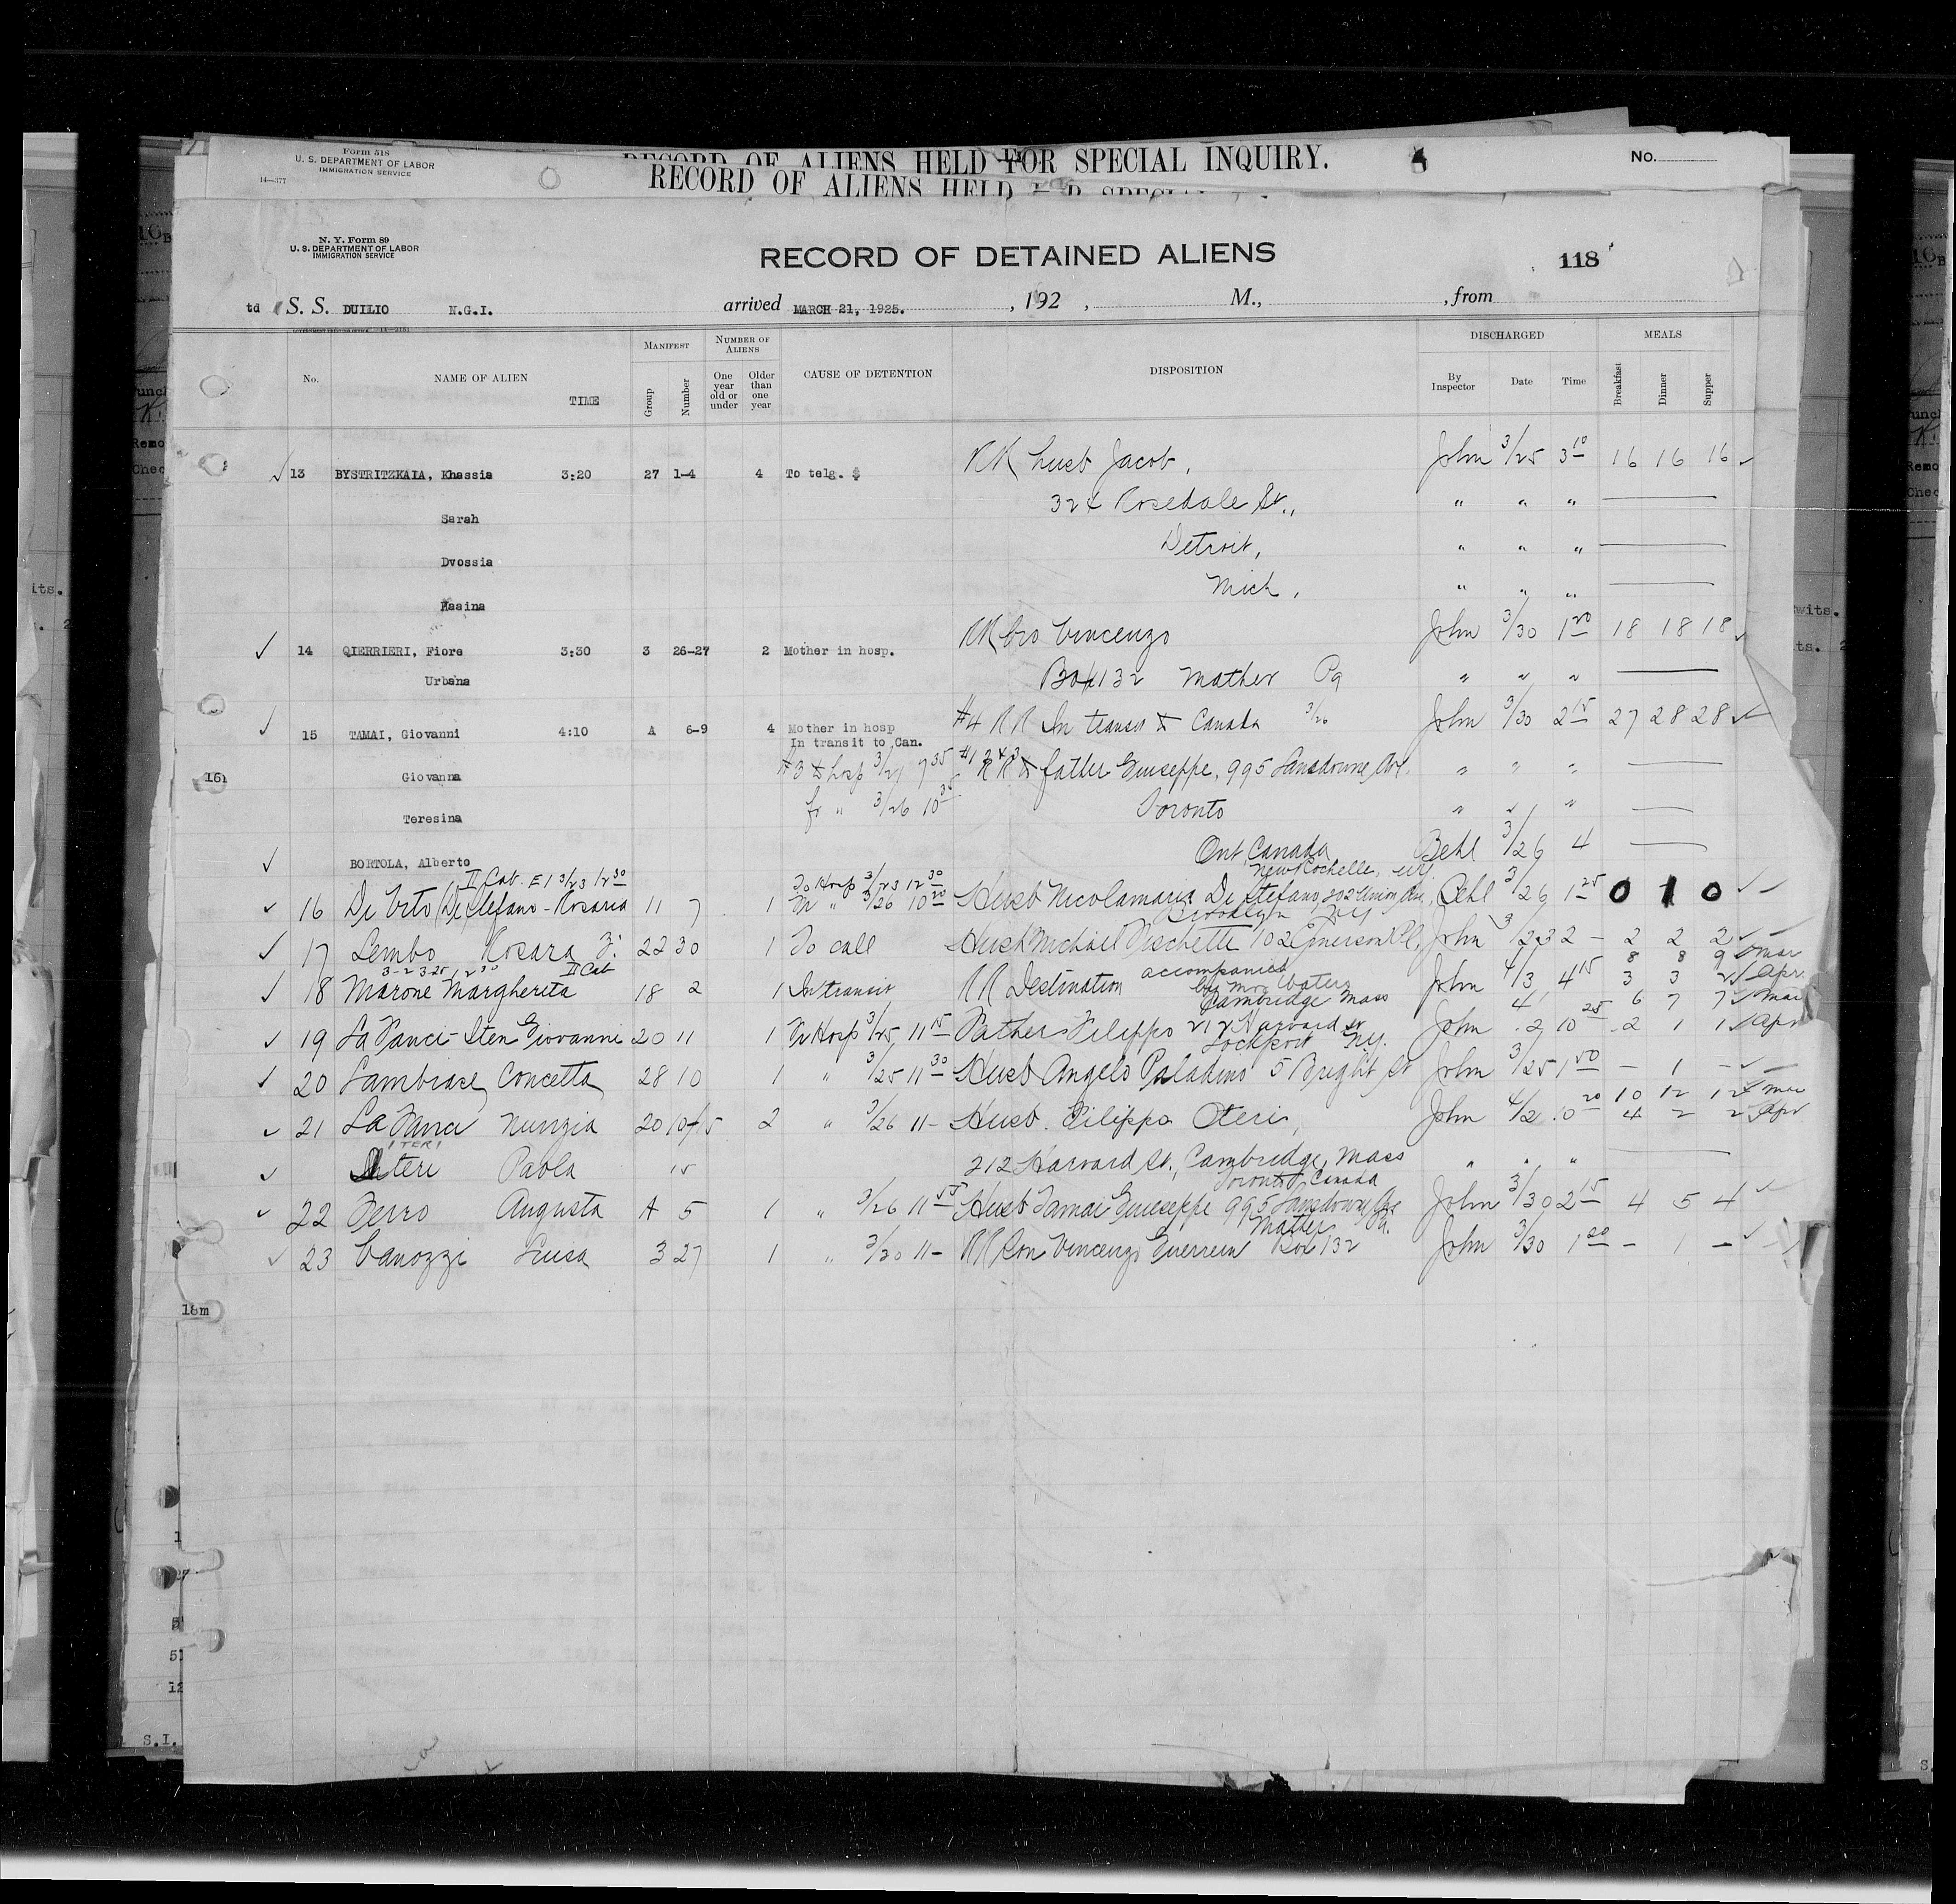 Form 518
U. S. DEPARTMENT OF LABOR
IMMIGRATION SERVICE
14—377
RECORD OF ALIENS HELD FOR SPECIAL INQUIRY.
No.
RECORD OF ALIENS HELD
N. Y. Form 89
U. S. DEPARTMENT OF LABOR
IMMIGRATION SERVICE
RECORD OF DETAINED ALIENS
118
td S. S. DUILIO N.G.I. arrived MARCH 21, 1925. , 192 , M., , from
No. NAME OF ALIEN TIME MANIFEST Group Number NUMBER OF ALIENS One year old or under Older than one year CAUSE OF DETENTION DISPOSITION DISCHARGED By Inspector Date Time MEALS Breakfast Dinner Supper
13 BYSTRITZKAIA, Khassia 3:20 27 1-4 4 To telg. $ RR husb Jacob, John 3/25 3 10 16 16 16
Sarah 324 Rosedale St., " " "
Dvossia Detroit, " " "
Hasina Mich, " " "
14 QIERRIERI, Fiore 3:30 3 26-27 2 Mother in hosp. RR bro Vincenzo John 3/30 1 20 18 18 18
Urbana Box 132 Mather Pa " " "
15 TAMAI, Giovanni 4:10 A 6-9 4 Mother in hosp #4 RR In transit to Canada 3/26 John 3/30 2 15 27 28 28
In transit to Can.
Giovanna #3 to hosp 3/21 7 35 RR to father Giuseppe, 995 Lansdowne Ave. " " "
Teresina fr " 3/26 10 Toronto " " "
BORTOLA, Alberto Ont Canada Behl 3/26 4
II Cab. E1 3/23 12 30 To Hosp 3/23 12 30 New Rochelle, NY.
16 De Vito (De) Stefano - Rosaria 11 7 1 Fr " 3/26 10 20 Husb Nicolamaria De Stefano, 202 Union Ave, Behl 3/26 1 25 0 1 0
Brooklyn NY
17 Lembo Rosara 22 30 1 To call Husb Michael 102 Emerson Pl, John 3/23 2 - 2 2 2
3-23-25 12 30 II Cab accompanied 8 8 9 mar
18 Marone Margherita 18 2 1 In transit RR Destination by Mrs Waters John 4/3 4 15 3 3 2 Apr.
Cambridge Mass 6 7 7 mar
19 Giovanni 20 11 1 Fr Hosp 3/25 11 15 Father Filippo 212 Harvard St John 4/2 10 25 2 1 1 Apr
Lockport NY.
20 Lambiase Concetta 28 10 1 " 3/25 11 30 Husb Angelo Paladino 5 Bright St John 3/25 1 50 - 1 -
10 12 12 mar
21 Nunzia 20 10+15 2 " 3/26 11 - Husb. Filippo Oteri, John 4/2 10 20 4 2 2 Apr
Paola 15 212 Harvard St., Cambridge, Mass " " "
Toronto Canada
22 Ferro Augusta A 5 1 " 3/26 11 55 Husb Tamai Giuseppe 995 Lansdowne Ave John 3/30 2 15 4 5 4
Mather Pa.
23 Canozzi Luisa 3 27 1 " 3/30 11 - RR Son Vincenzo Guerrieri Box 132 John 3/30 1 20 - 1 -
161
18m
S.I.